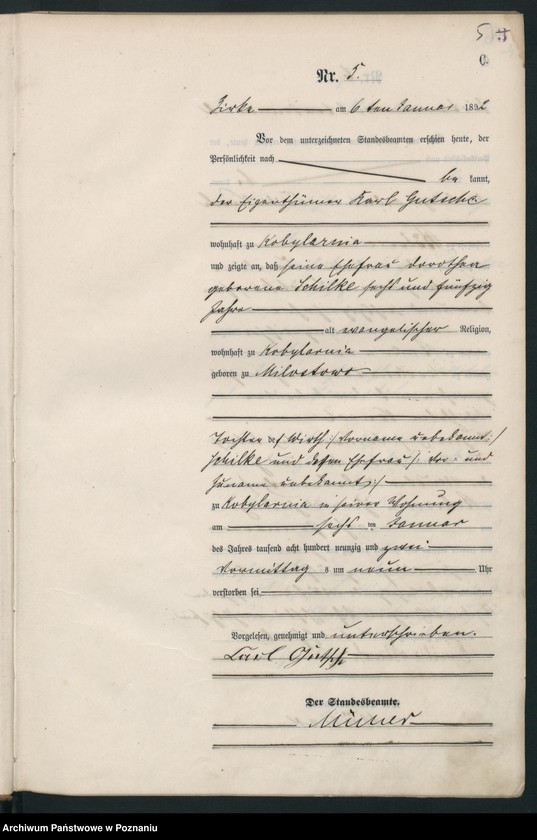 5
C.
Nr. 5.
Zirke am 6ten Januar 1892
Vor dem unterzeichneten Standesbeamten erschien heute, der
Persönlichkeit nach
be kannt,
der Eigenthümer Karl Gutsche
wohnhaft zu Kobylarnia
und zeigte an, daß seine Ehefrau Dorothea
geborene Schilke sechs und fünfzig
Jahre
alt evangelischer Religion,
wohnhaft zu Kobylarnia
geboren zu Milostowo
Tochter des Wirth /: Vorname unbekannt :/
Schilke und dessen Ehefrau /: Vor- und
Zuname unbekannt :/
zu Kobylarnia in seiner Wohnung
am sechs ten Januar
des Jahres tausend acht hundert neunzig und zwei
Vormittag s um neun Uhr
verstorben sei
Vorgelesen, genehmigt und unterschrieben.
Carl Gutsche
Der Standesbeamte.
Archiwum Państwowe w Poznaniu